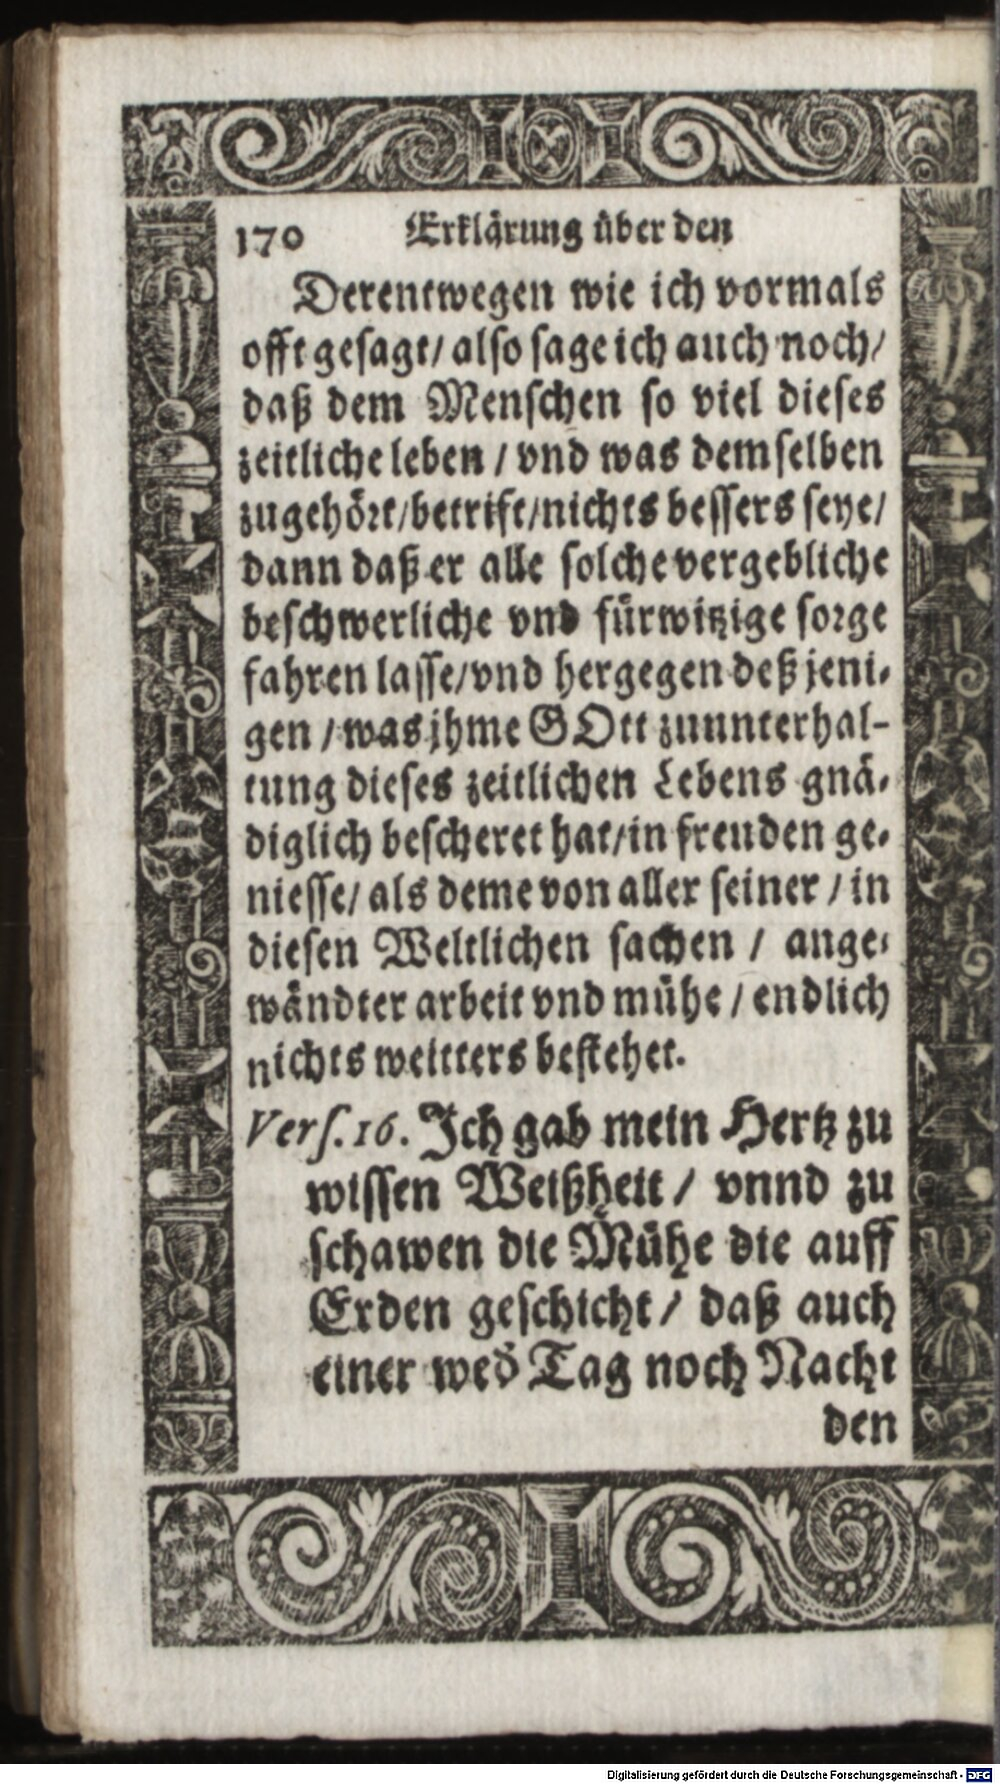 170 Erklärung über den
Derentwegen wie ich vormals
offt gesagt/ also sage ich auch noch/
daß dem Menschen so viel dieses
zeitliche leben / vnd was demselben
zugehört/betrift/nichts bessers seye/
dann daß er alle solche vergebliche
beschwerliche vnd fürwitzige sorge
fahren lasse/vnd hergegen deß jeni-
gen / was jhme GOtt zuunterhal-
tung dieses zeitlichen Lebens gnä-
diglich bescheret hat/in freuden ge-
niesse/ als deme von aller seiner / in
diesen Weltlichen sachen / ange-
wändter arbeit vnd mühe / endlich
nichts weitters bestehet.
Vers. 16. Ich gab mein Hertz zu
wissen Weißheit / vnnd zu
schawen die Mühe die auff
Erden geschicht / daß auch
einer wed̃ Tag noch Nacht
den
Digitalisierung gefördert durch die Deutsche Forschungsgemeinschaft - DFG